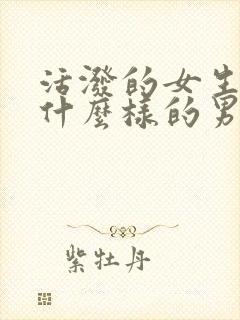 活潑的女生
什麼樣的男
紫牡丹